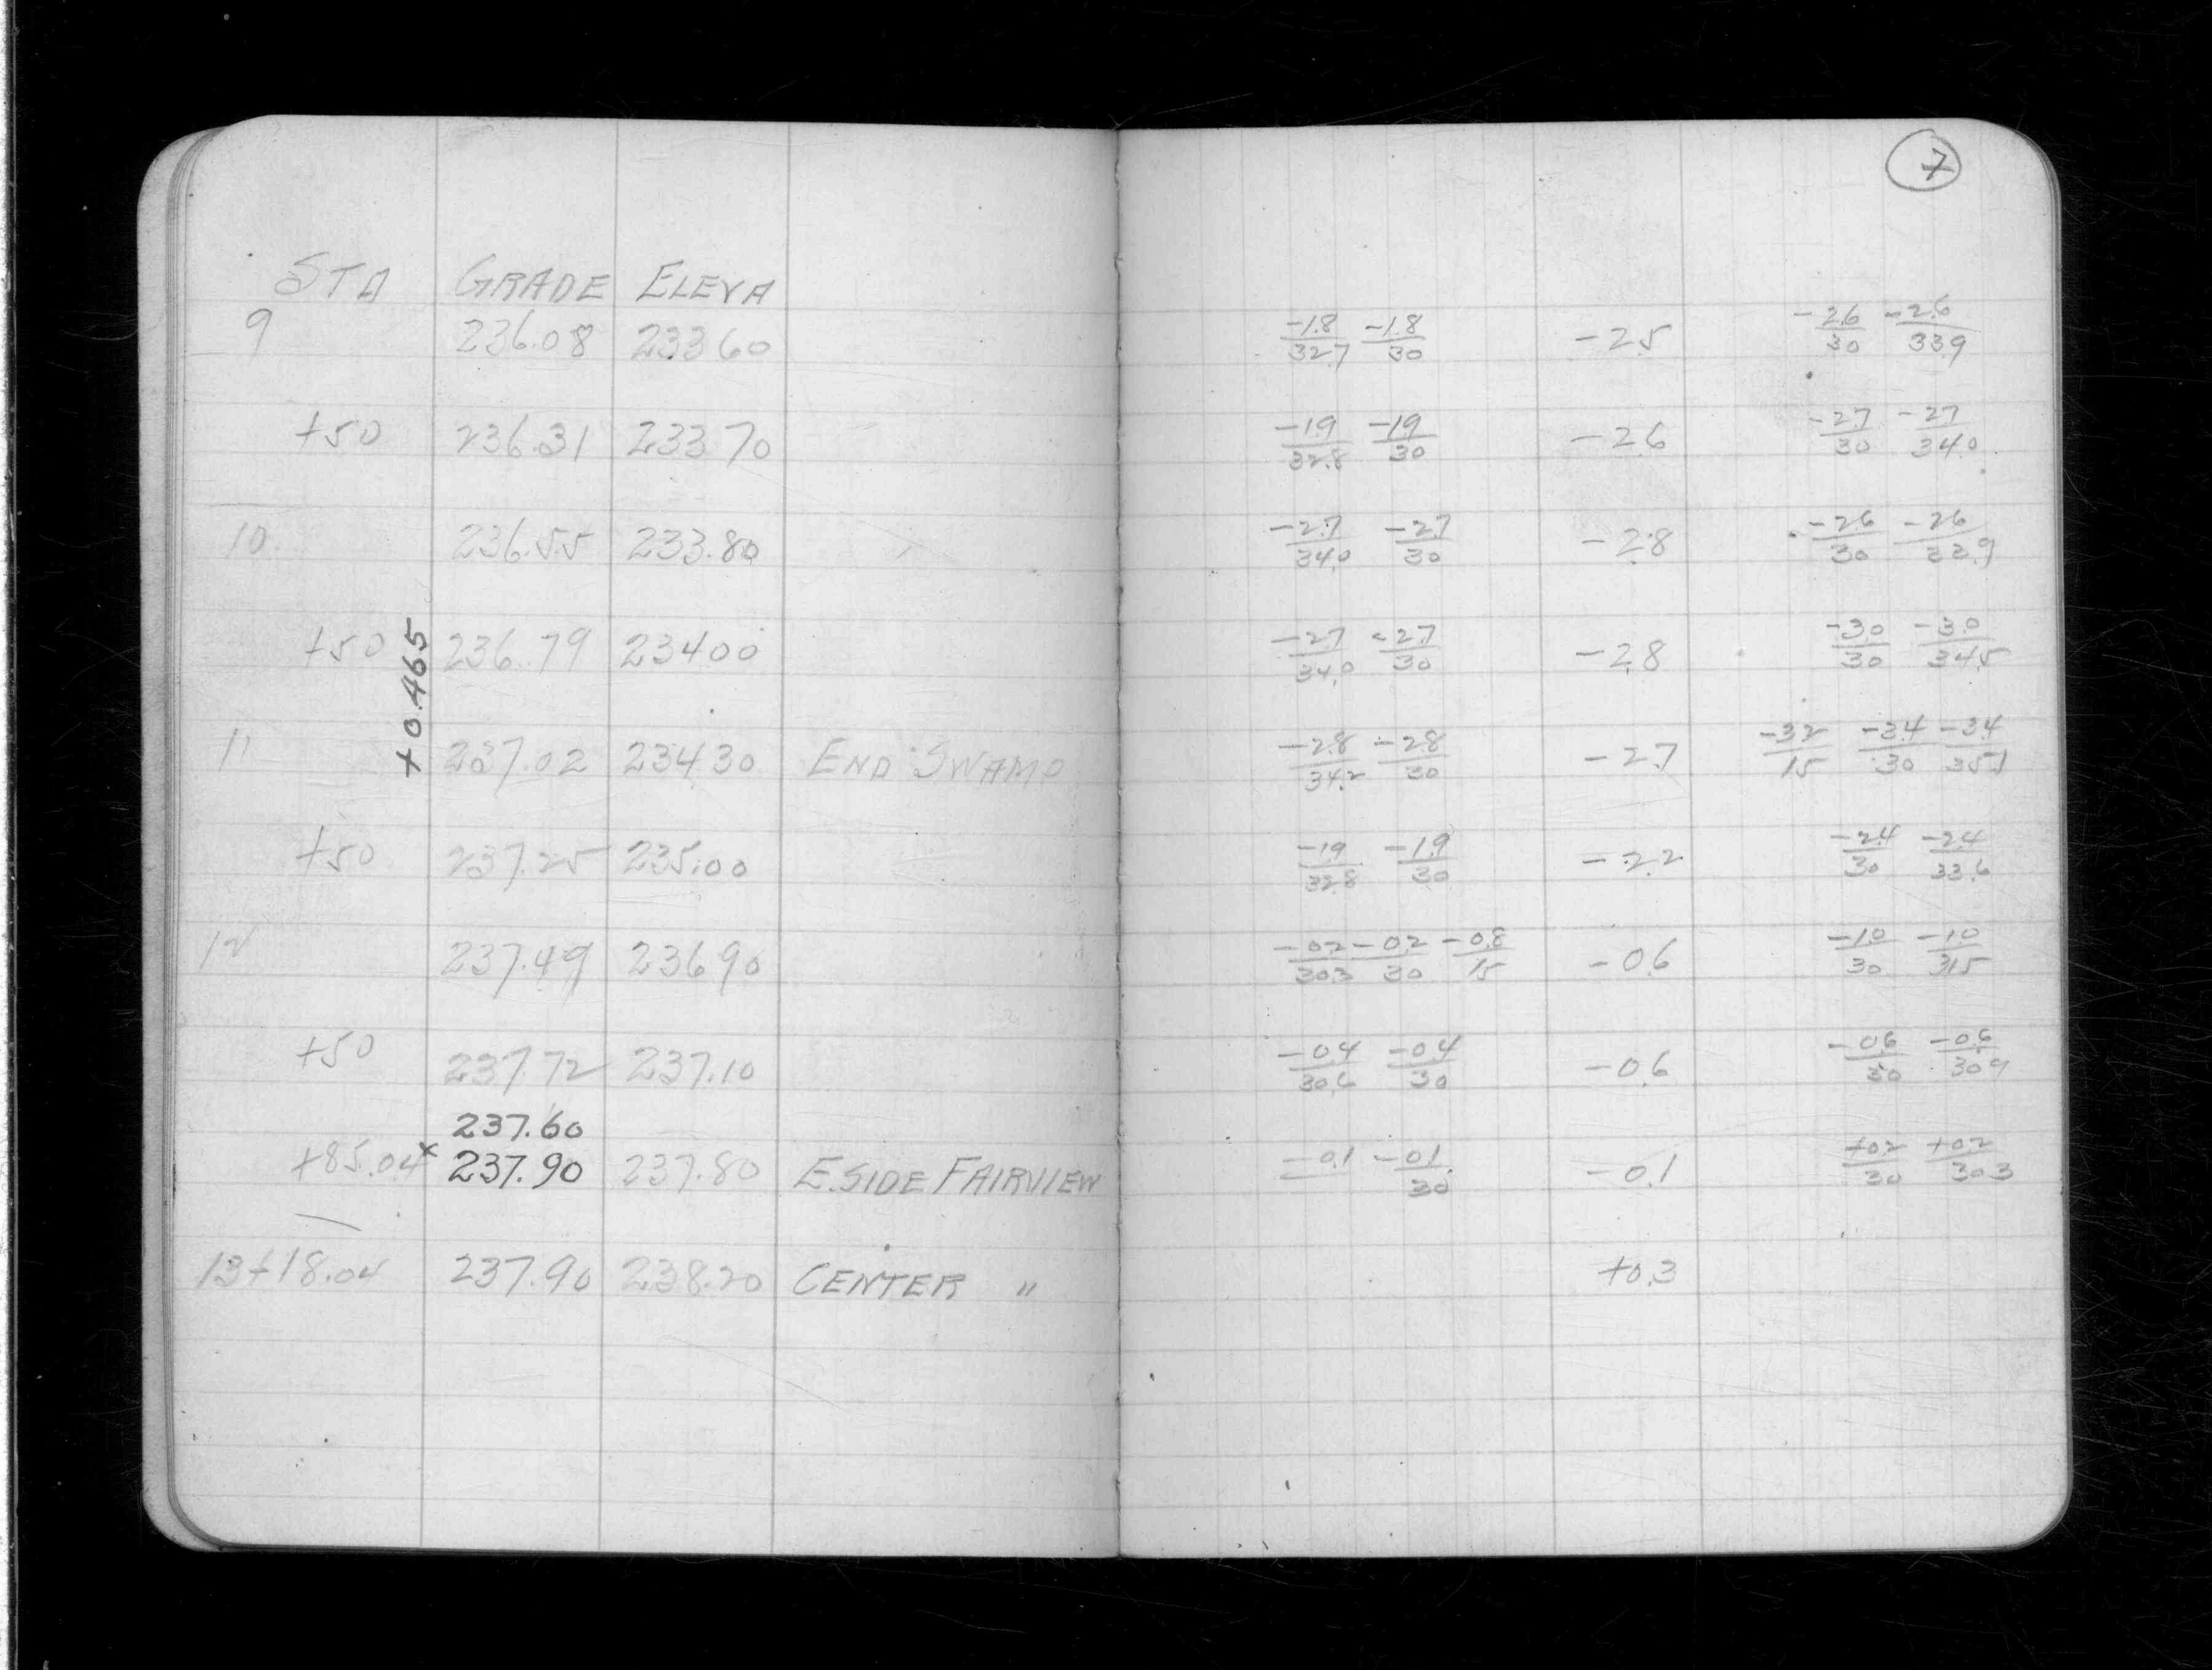 7
STA GRADE ELEVA
9 236.08 233 60 -1.8/32.7 -1.8/30 -2.5 -2.6/30 -2.6/33.9
+50 236.31 233 70 -1.9/32.8 -1.9/30 -2.6 -2.7/30 -2.7/34.0
10 236.55 233.80 -2.7/34.0 -2.7/30 -2.8 -2.6/30 -2.6/33.9
+50 236.79 234 00 -2.7/34.0 -2.7/30 -2.8 -3.0/30 -3.0/34.5
+0.465
11 237.02 234 30 END SWAMP -2.8/34.2 -2.8/30 -2.7 -3.2/15 -3.4/30 -3.4/35.1
+50 237.25 235.00 -1.9/32.8 -1.9/30 -2.2 -2.4/30 -2.4/33.6
12 237.49 236 90 -0.2/30.3 -0.2/30 -0.8/15 -0.6 -1.0/30 -1.0/31.5
+50 237.72 237.10 -0.4/30.6 -0.4/30 -0.6 -0.6/30 -0.6/30.9
237.60
+85.04 x 237.90 237.80 E. SIDE FAIRVIEW -0.1 -0.1/30 -0.1 +0.2/30 +0.2/30.3
13+18.04 237.90 238.20 CENTER " +0.3